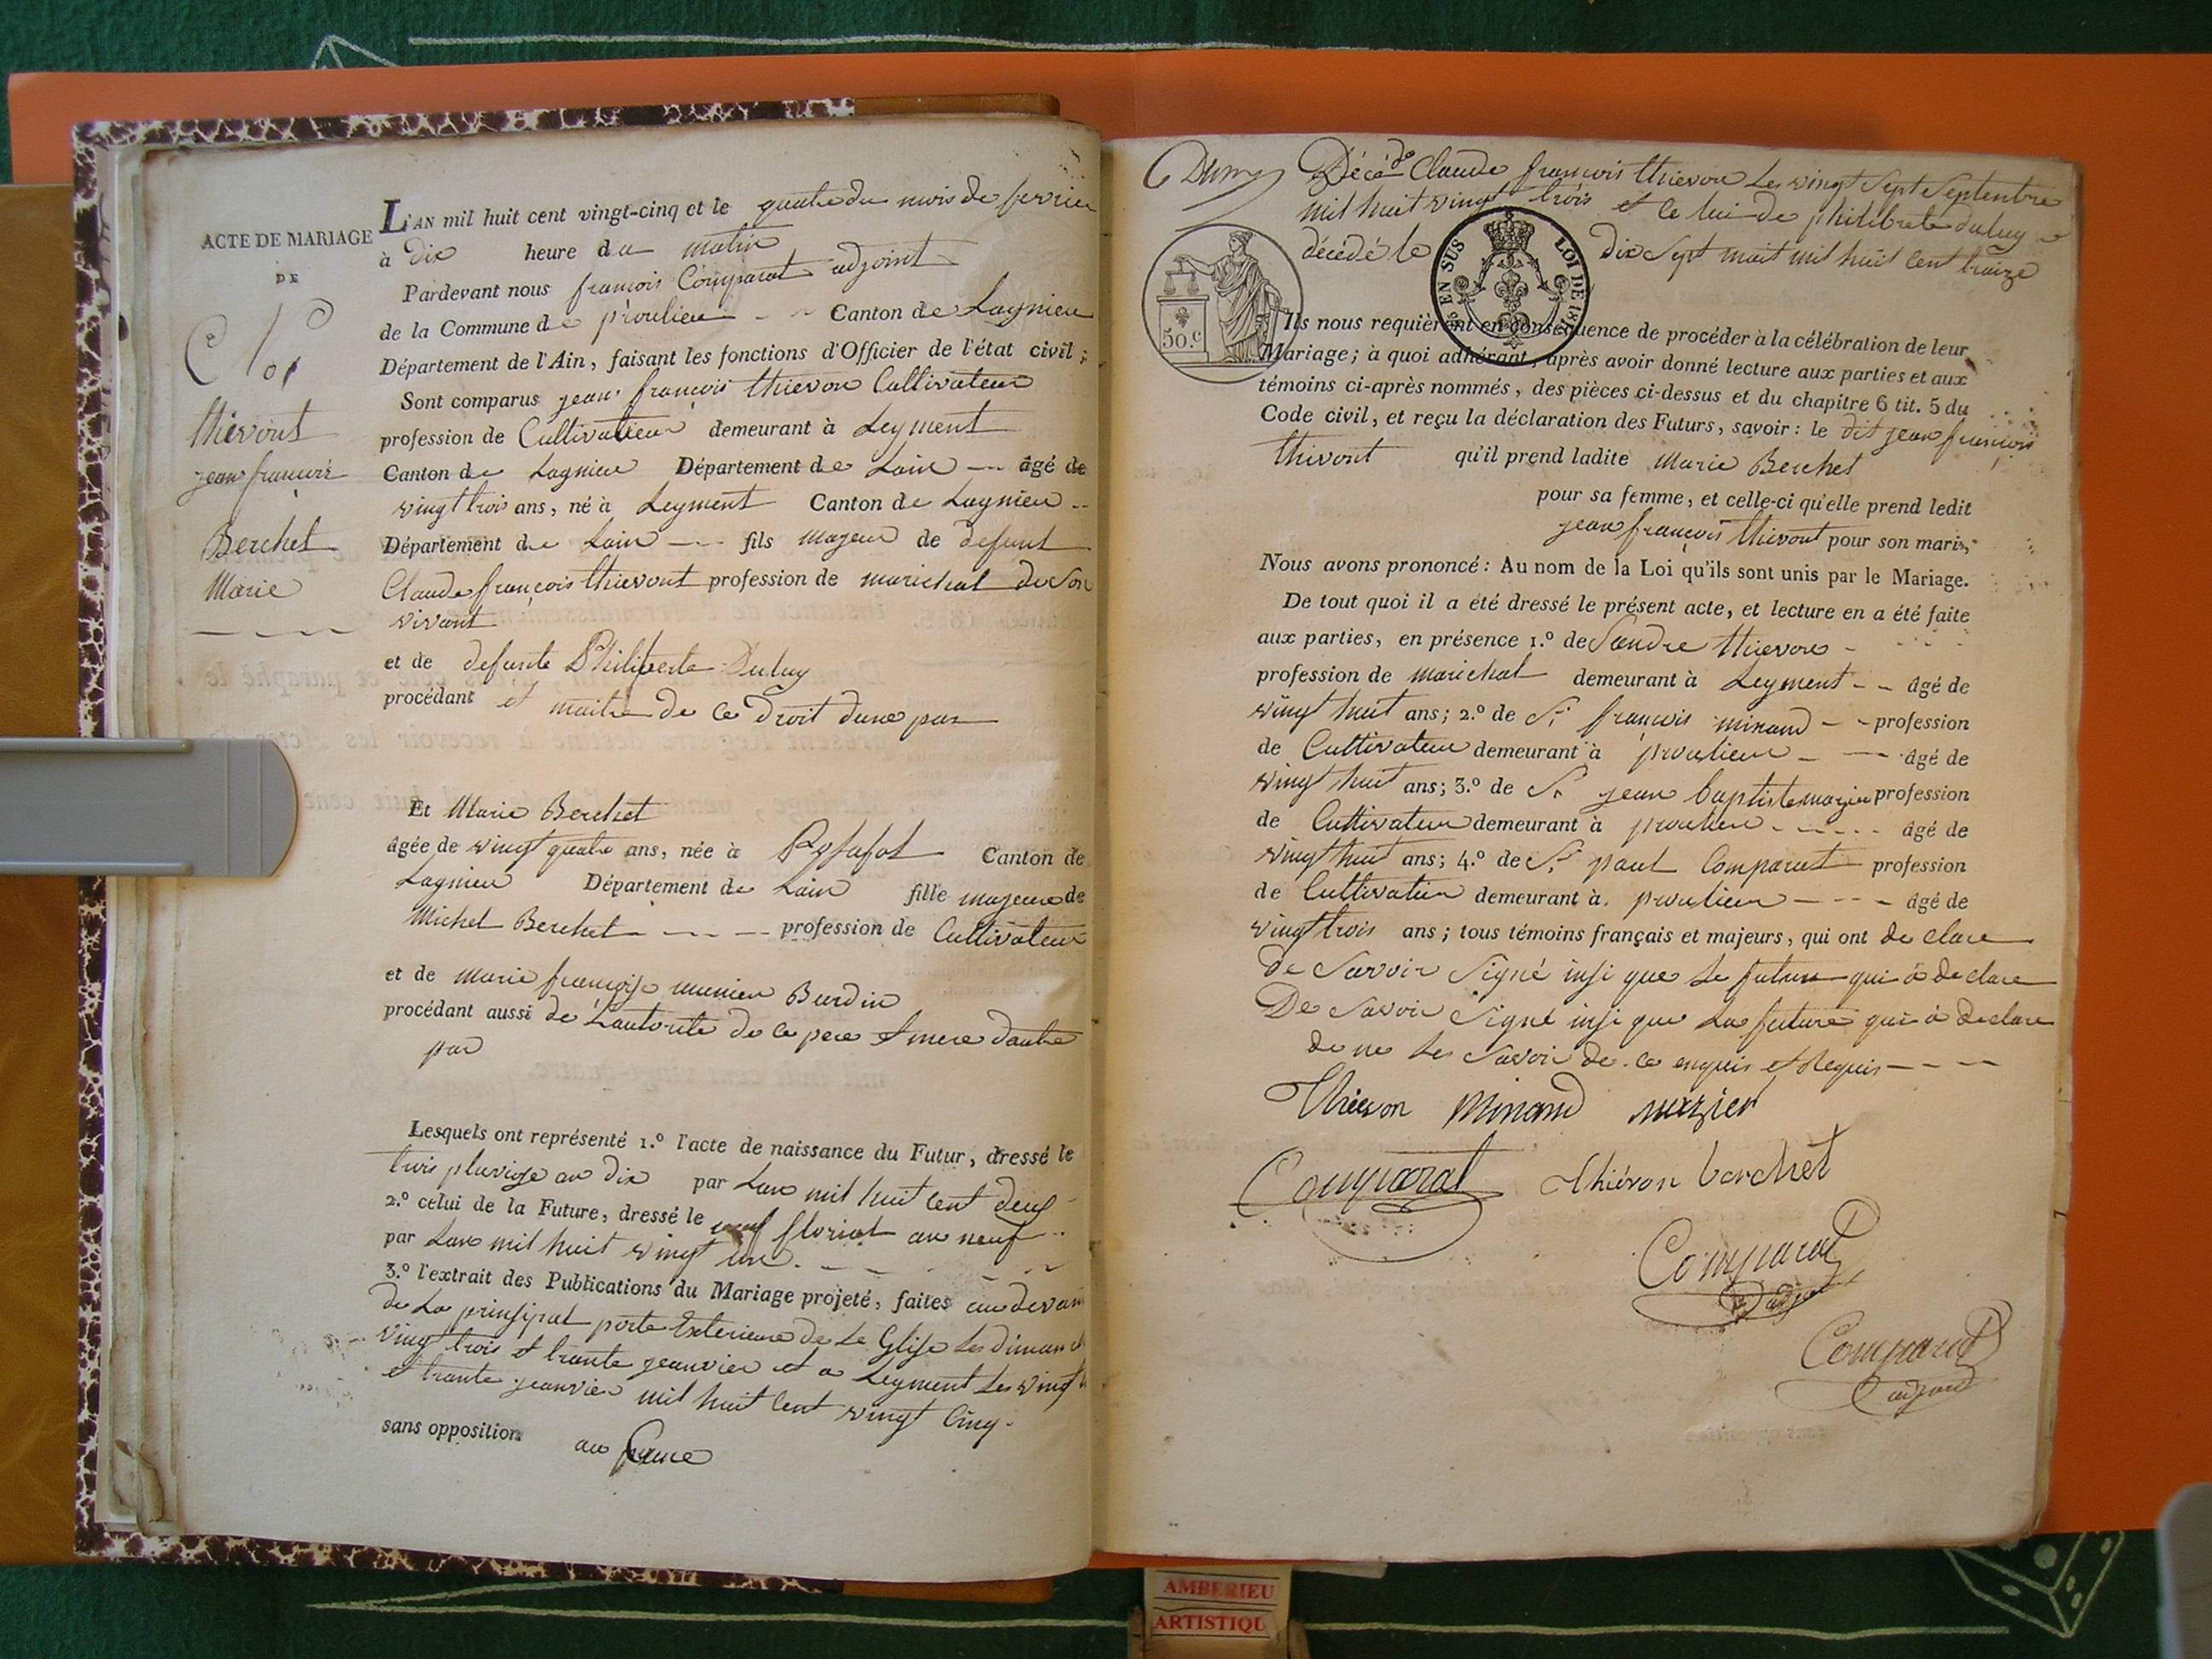 ACTE DE MARIAGE
DE
thievont
jean francois
Berchet
Marie
L'AN mil huit cent vingt-cinq et le quatre du mois de fevrier
à dix heure du matin
Pardevant nous francois Comparat adjoint
de la Commune de proulieu Canton de Lagnieu
Département de l'Ain, faisant les fonctions d'Officier de l'état civil;
Sont comparus jean francois thievon Cultivateur
profession de Cultivateur demeurant à Leyment
Canton de Lagnieu Département de Lain âgé de
vingt trois ans, né à Leyment Canton de Lagnieu
Département de Lain fils majeur de defunt
Claude françois thievont profession de marichal de son
vivant
et de defunte Philiberte Duluy
procédant et maitre de ce Droit dune par
Et Marie Berchet
âgée de vingt quatre ans, née à Canton de
Lagnieu Département de Lain fille majeure de
Michel Berchet profession de Cultivateur
et de marie françoise munier Burdin
procédant aussi de Lautorité de ce pere et mere dautre
par
Lesquels ont représenté 1.º l'acte de naissance du Futur, dressé le
trois pluviose an dix par Lan mil huit cent deux
2.º celui de la Future, dressé le neuf florial an neuf
par Lan mil huit vingt un
3.º l'extrait des Publications du Mariage projeté, faites au devant
de La prinsipal porte Exterieure de Le Glise Les dimanch
vingt trois et trante jeanvier et a Leyment Les vingt
et trante jeanvier mil huit cent vingt cinq.
sans opposition au
Décé Claude francois thievon Les vingt sept septenbre
mil huit vingt trois et ce lui de philiberte duluy
décédé le dix sept mait mil huit cent traize
50.c
EN SUS
LOI DE 18
Ils nous requièrent en conséquence de procéder à la célébration de leur
Mariage; à quoi adhérant, après avoir donné lecture aux parties et aux
témoins ci-après nommés, des pièces ci-dessus et du chapitre 6 tit. 5 du
Code civil, et reçu la déclaration des Futurs, savoir: le dit jean francois
thievont qu'il prend ladite Marie Berchet
pour sa femme, et celle-ci qu'elle prend ledit
jean françois thievont pour son mari,
Nous avons prononcé: Au nom de la Loi qu'ils sont unis par le Mariage.
De tout quoi il a été dressé le présent acte, et lecture en a été faite
aux parties, en présence 1.º de Sandre thievon
profession de marichal demeurant à Leyment âgé de
vingt huit ans; 2.º de Sr francois minand profession
de Cultivateur demeurant à proulieu âgé de
vingt huit ans; 3.º de Sr jean baptiste mazier profession
de Cultivateur demeurant à proulieu âgé de
vingt huit ans; 4.º de Sr paul Comparat profession
de Cultivateur demeurant à proulieu âgé de
vingt trois ans; tous témoins français et majeurs, qui ont de clare
De Savoir Signé insi que Le futur qui à de clare
De Savoir Signé insi que La future qui à declare
de ne Les Savoir de ce enquis et Requis
Thievon Minand mazier
Comparat Thiévon berchet
Comparat
adjoint
Comparat
adjoint
AMBERIEU
ARTISTIQU